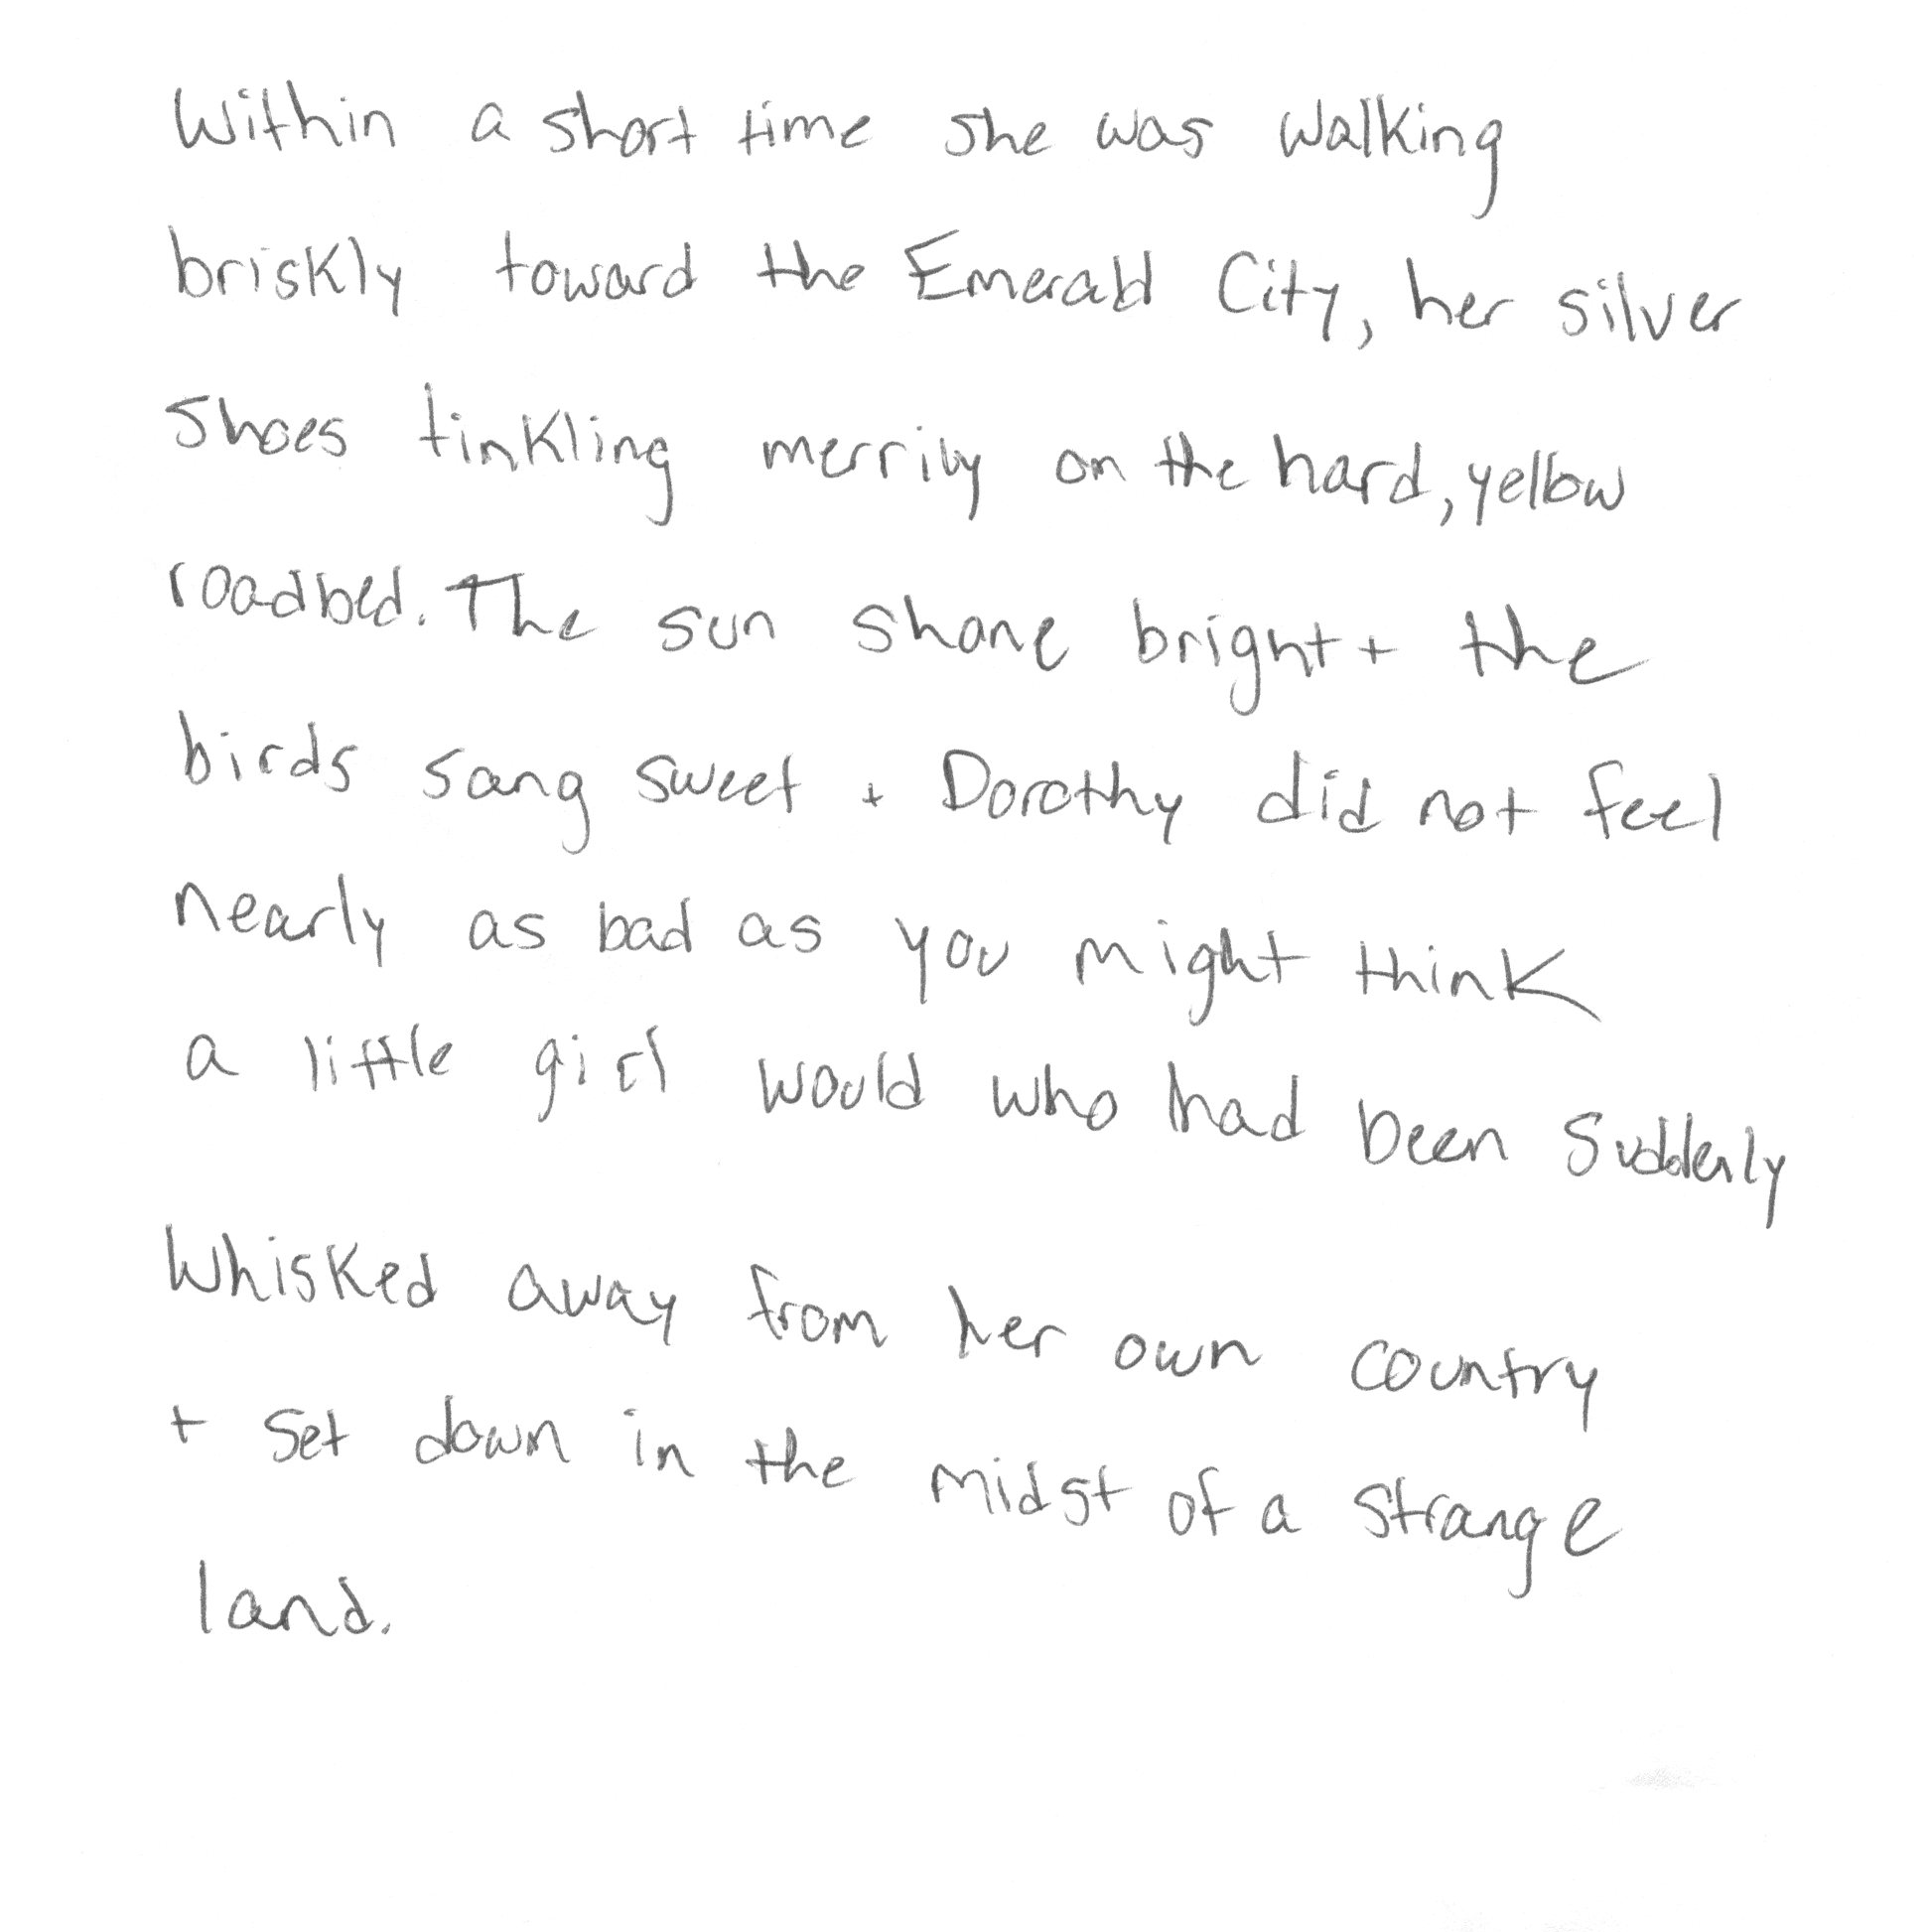 Within a short time she was walking
briskly toward the Emerald City, her silver
shoes tinkling merrily on the hard, yellow
roadbed. The sun shone bright + the
birds sang sweet + Dorothy did not feel
nearly as bad as you might think
a little girl would who had been suddenly
whisked away from her own country
+ set down in the midst of a strange
land.